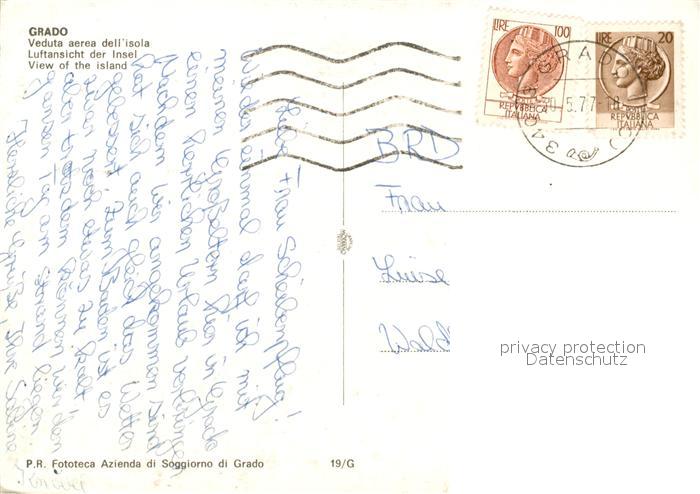 GRADO
Veduta aerea dell'isola
Luftansicht der Insel
View of the island
LIRE 100
REPVBBLICA
ITALIANA
LIRE 20
REPVBBLICA
ITALIANA
GRADO
5.77
BRD
Frau
Luise
Wald
privacy protection
Datenschutz
Liebe Frau
Wieder einmal darf ich mit
meinen Großeltern hier in Grado
einen herrlichen Urlaub verbringen
Nachdem wir angekommen sind
hat sich auch gleich das Wetter
gebessert. Zum Baden ist es
zwar noch etwas zu kalt
aber trotzdem können wir den
ganzen Tag am Strand liegen
Herzliche Grüße Ihre
P.R. Fototeca Azienda di Soggiorno di Grado 19/G